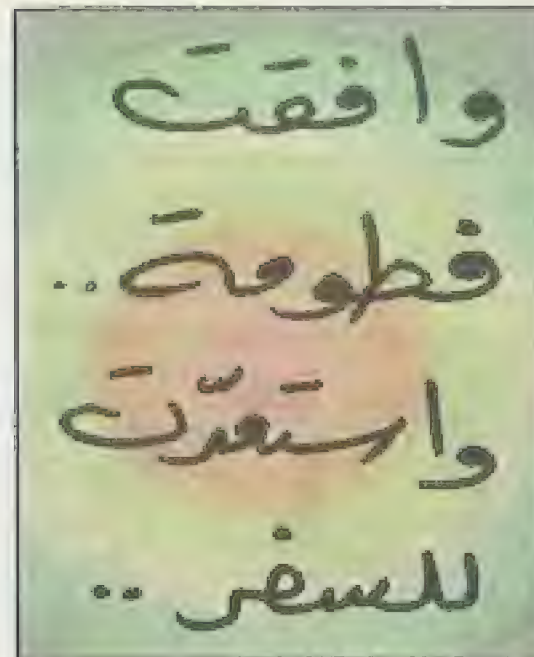 وافقت
فطومة..
واستعدّت
للسفر..